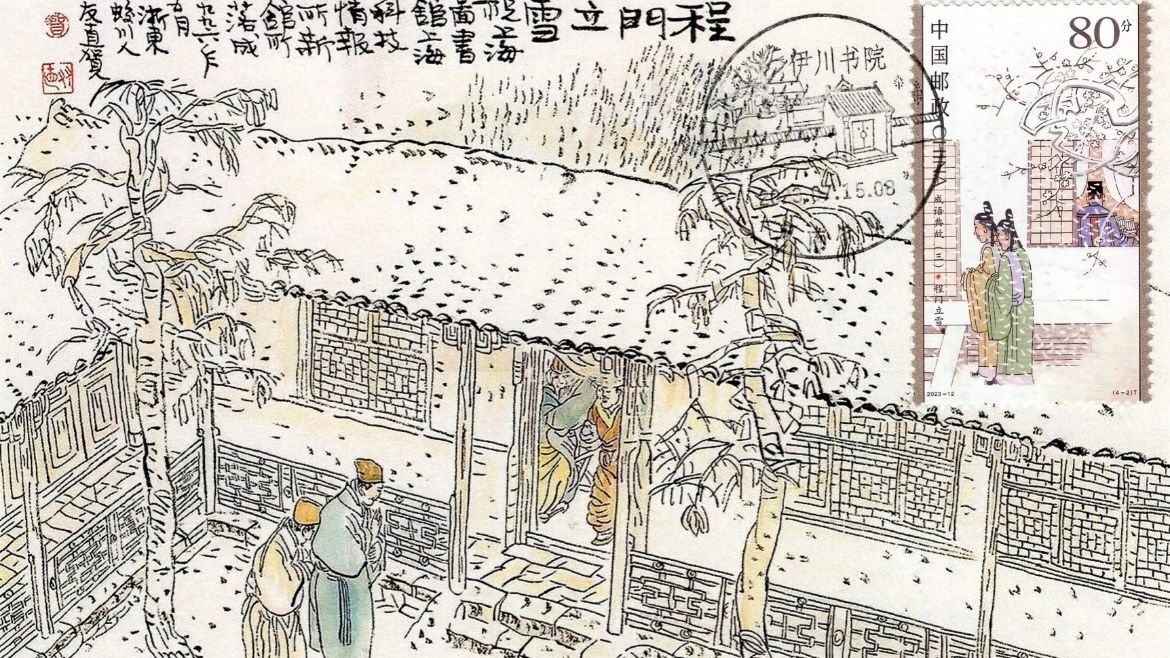 程門立雪
祝上海
圖書
館上海
科技
情報
所新
館所
落成
一九九六年
五月
浙東
蛟川人
友直賀
伊川书院
15.08
80分
中国邮政
成语典故(三)·程门立雪
2023-12
(4-2)T